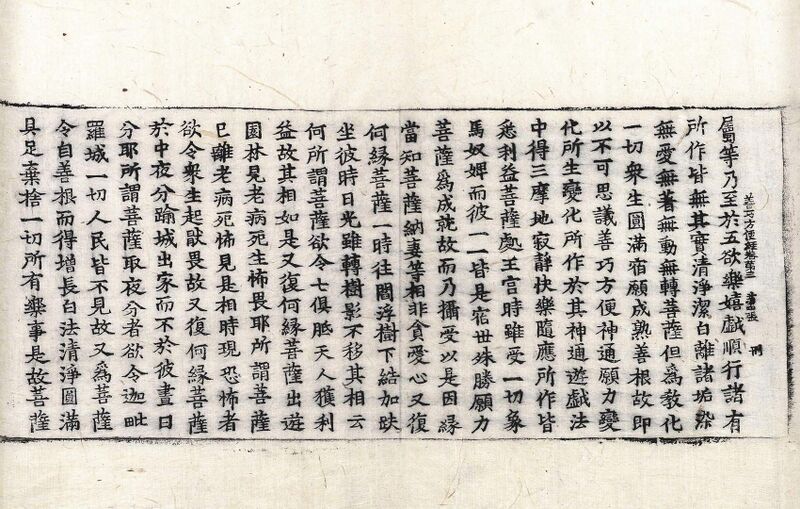 屬等乃至於五欲樂嬉戲順行諸有
善巧方便經卷第三 第四張 刑
所作皆無其實清淨潔白離諸垢染
無愛無著無動無轉菩薩但爲教化
一切衆生圓滿宿願成熟善根故即
以不可思議善巧方便神通願力變
化所生變化所作於其神通遊戲法
中得三摩地寂靜快樂隨應所作皆
悉利益菩薩處王宮時雖受一切象
馬奴婢而彼一一皆是宿世殊勝願力
菩薩爲成就故而乃攝受以是因緣
當知菩薩納妻等相非貪愛心又復
何緣菩薩一時往閻浮樹下結加趺
坐彼時日光雖轉樹影不移其相云
何所謂菩薩欲令七俱胝天人獲利
益故其相如是又復何緣菩薩出遊
園林見老病死生怖畏耶所謂菩薩
已離老病死怖見是相時現恐怖者
欲令衆生起猒畏故又復何緣菩薩
於中夜分踰城出家而不於彼晝日
分耶所謂菩薩取夜分者欲令迦毗
羅城一切人民皆不見故又爲菩薩
令自善根而得增長白法清淨圓滿
具足棄捨一切所有樂事是故菩薩